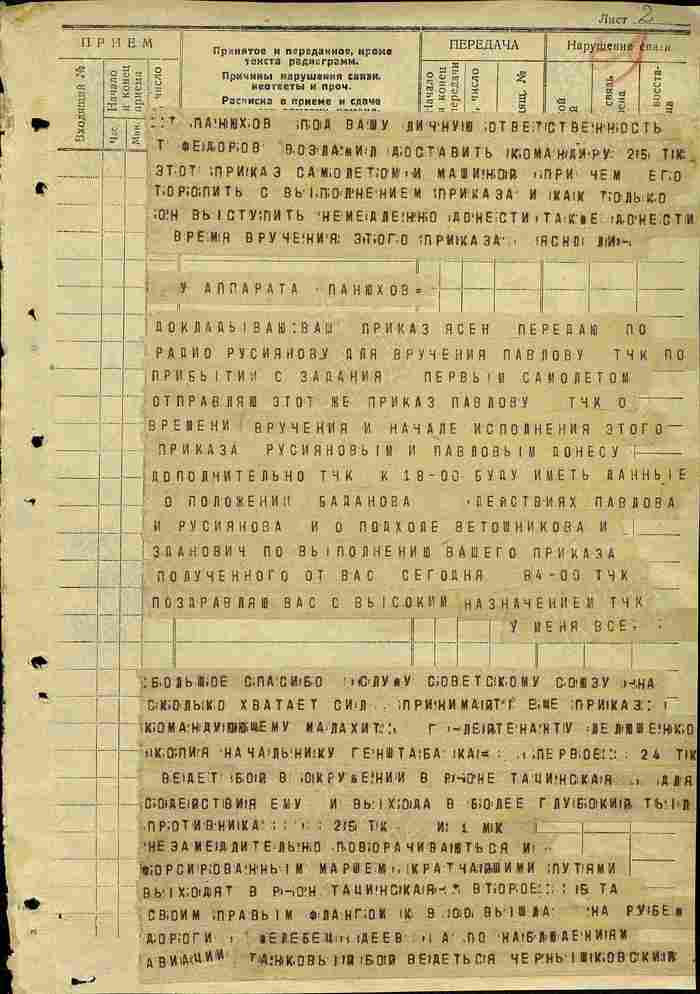 Лист 2
ПРИЕМ
Принятое и переданное, кроме
текста радиограмм.
Причины нарушения связи,
неответы и проч.
Расписка о приеме и сдаче
ПЕРЕДАЧА
Нарушение связи
Входящий №
Час.
Начало
и конец
приема
Мин.
число
Начало
и конец
передачи
число
№
связь
восста-
Т ПАНЮХОВ ПОД ВАШУ ЛИЧНУЮ ОТВЕТСТВЕННОСТЬ
Т ФЕДОРОВ ВОЗЛАЖИЛ ДОСТАВИТЬ КОМАНДИРУ 25 ТК
ЭТОТ ПРИКАЗ САМОЛЕТОМ И МАШИНОЙ ПРИ ЧЕМ ЕГО
ТОРОПИТЬ С ВЫПОЛНЕНИЕМ ПРИКАЗА И КАК ТОЛЬКО
ОН ВЫСТУПИТЬ НЕМЕДЛЕННО ДОНЕСТИ ТАКЖЕ ДОНЕСТИ
ВРЕМЯ ВРУЧЕНИЯ ЭТОГО ПРИКАЗА ЯСНО ЛИ-
У АППАРАТА ПАНЮХОВ=
ДОКЛАДЫВАЮ:ВАШ ПРИКАЗ ЯСЕН ПЕРЕДАЮ ПО
РАДИО РУСИЯНОВУ ДЛЯ ВРУЧЕНИЯ ПАВЛОВУ ТЧК ПО
ПРИБЫТИИ С ЗАДАНИЯ ПЕРВЫМ САМОЛЕТОМ
ОТПРАВЛЯЮ ЭТОТ ЖЕ ПРИКАЗ ПАВЛОВУ ТЧК О
ВРЕМЕНИ ВРУЧЕНИЯ И НАЧАЛЕ ИСПОЛНЕНИЯ ЭТОГО
ПРИКАЗА РУСИЯНОВЫМ И ПАВЛОВЫМ ДОНЕСУ
ДОПОЛНИТЕЛЬНО ТЧК К 18-00 БУДУ ИМЕТЬ ДАННЫЕ
О ПОЛОЖЕНИИ БАДАНОВА ДЕЙСТВИЯХ ПАВЛОВА
И РУСИЯНОВА И О ПОДХОДЕ ВЕТОШНИКОВА И
ЗДАНОВИЧ ПО ВЫПОЛНЕНИЮ ВАШЕГО ПРИКАЗА
ПОЛУЧЕННОГО ОТ ВАС СЕГОДНЯ 04-00 ТЧК
ПОЗДРАВЛЯЮ ВАС С ВЫСОКИМ НАЗНАЧЕНИЕМ ТЧК
У МЕНЯ ВСЕ
БОЛЬШОЕ СПАСИБО СЛУЖУ СОВЕТСКОМУ СОЮЗУ НА
СКОЛЬКО ХВАТАЕТ СИЛ ПРИНИМАЙТЕ ЕЩЕ ПРИКАЗ
КОМАНДУЮЩЕМУ МАЛАХИТ Г-ЛЕЙТЕНАНТУ ЛЕЛЮШЕНКО
КОПИЯ НАЧАЛЬНИКУ ГЕНШТАБА КА= ПЕРВОЕ 24 ТК
ВЕДЕТ БОЙ В ОКРУЖЕНИИ В Р-ОНЕ ТАЦИНСКАЯ ДЛЯ
СОДЕЙСТВИЯ ЕМУ И ВЫХОДА В БОЛЕЕ ГЛУБОКИЙ ТЫЛ
ПРОТИВНИКА 25 ТК И 1 МК
НЕЗАМЕДЛИТЕЛЬНО ПОВОРАЧИВАЮТЬСЯ И
ФОРСИРОВАННЫМ МАРШЕМ КРАТЧАЙШИМИ ПУТЯМИ
ВЫХОДЯТ В Р-ОН ТАЦИНСКАЯ ВТОРОЕ 5 ТА
СВОИМ ПРАВЫМ ФЛАНГОМ К 9.00 ВЫШЛА НА РУБЕЖ
ДОРОГИ ПО НАБЛЮДЕНИЯМ
АВИАЦИИ ТАНКОВЫЙ БОЙ ВЕДЕТЬСЯ ЧЕРНЫШКОВСКИЙ